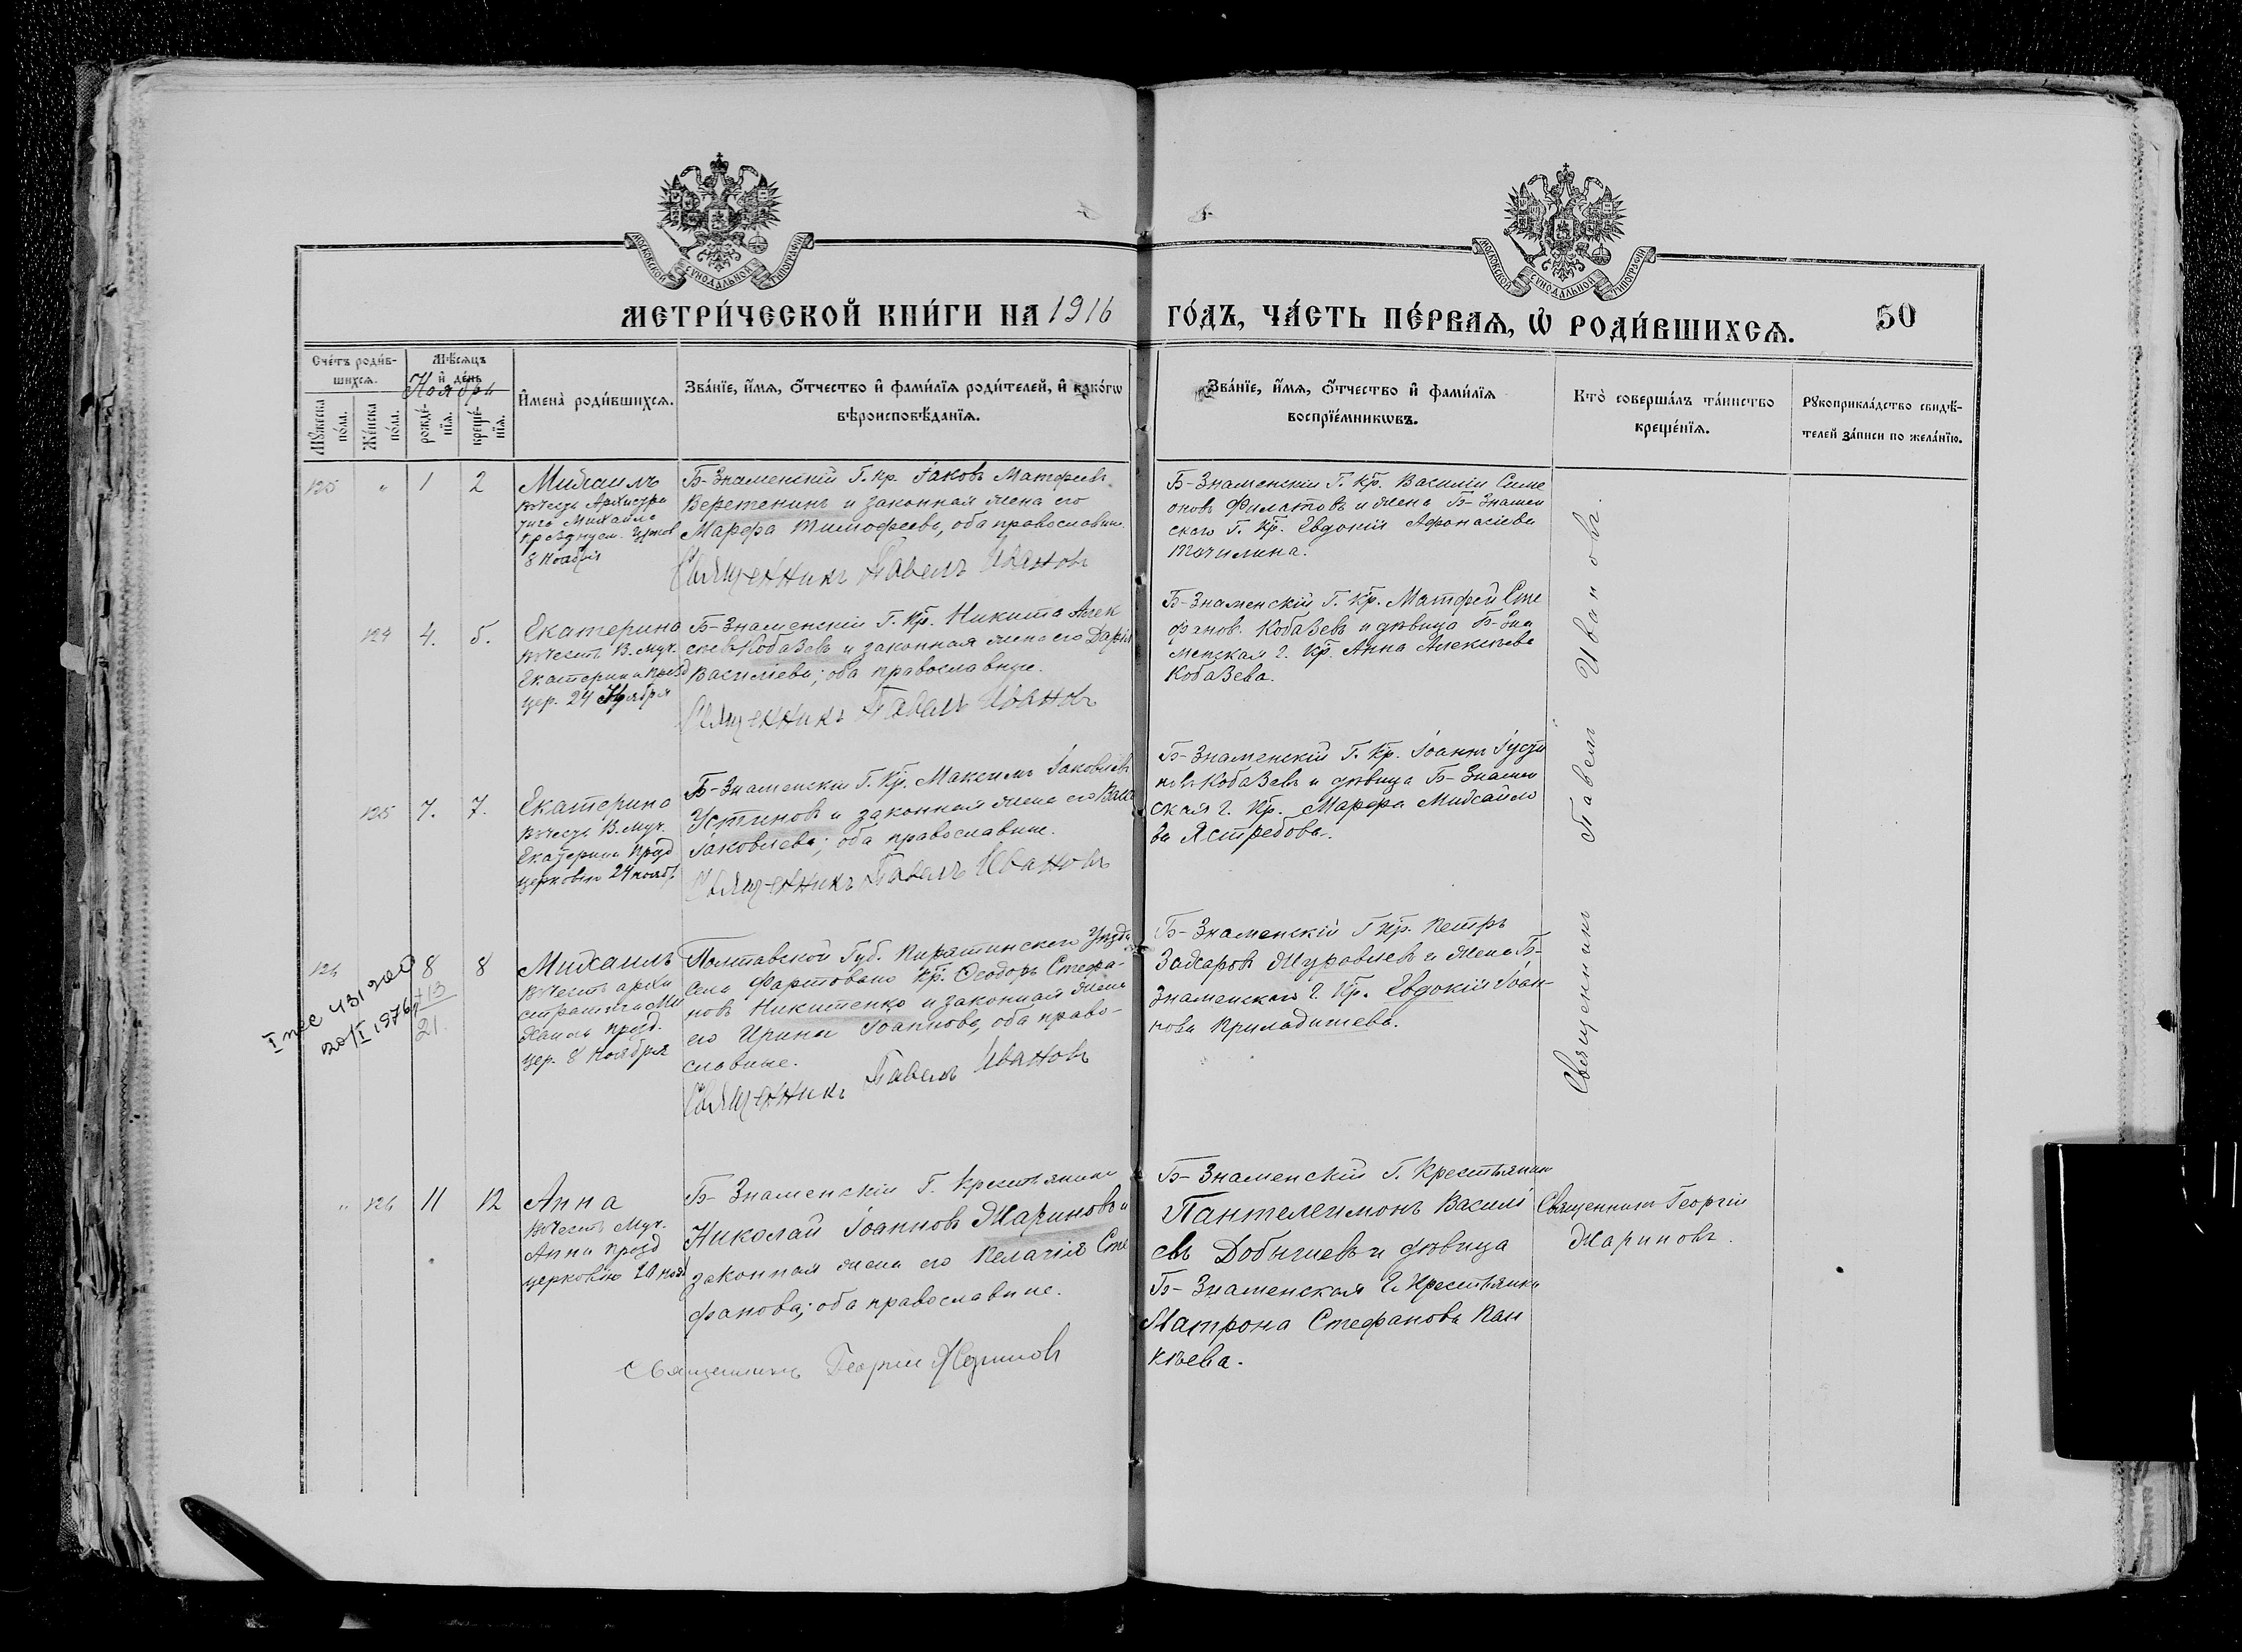 МОСКОВСКОЙ СУНОДАЛЬНОЙ ТИПОГРАФІИ
МОСКОВСКОЙ СУНОДАЛЬНОЙ ТИПОГРАФІИ
МЕТРИ́ЧЕСКОЙ КНИ́ГИ НА 1916
ГО́ДЪ, ЧА́СТЬ ПЕ́РВАѦ, Ѡ РОДИ́ВШИХСѦ.
50
Сче́тъ роди́в-
шихсѧ.
Мѣ́сѧцъ
и де́нь
Ноября
Мꙋ́жеска
по́ла.
Же́нска
по́ла.
рожде́-
нїѧ.
креще́-
нїѧ.
И҆мена̀ роди́вшихсѧ.
Зва́нїе, и҆́мѧ, ѻ҆́тчество и҆ фами́лїѧ роди́телей, и҆ како́гѡ
вѣроисповѣ́данїѧ.
Зва́нїе, и҆́мѧ, ѻ҆́тчество и҆ фами́лїѧ
воспрїе́мникѡвъ.
Кто̀ соверша́лъ та́инство
креще́нїѧ.
Рꙋкоприкла́дство свидѣ́-
телей за́писи по жела́нїю.
125 " 1 2
Михаилъ
8 Ноября
Б-Знаменскій Г. Кр. Іаковъ Матфеевъ
Веретенинъ и законная жена его
Марфа Тимофеева, оба православные.
Священникъ Павелъ Ивановъ
Б-Знаменскій Г. Кр. Василій Симе
оновъ Филатовъ и жена Б-Знамен
скаго Г. Кр. Евдокія Афонасіева
124 4. 5.
Екатерина
въ честь В. муч.
цер. 24 Ноября
Б-Знаменскій Г. Кр. Никита Алек
сѣевъ Кобазевъ и законная жена его Дарія
Василіева; оба православные.
Священникъ Павелъ Ивановъ
Б-Знаменскій Г. Кр. Матфей Сте
фановъ Кобазевъ и дѣвица Б-Зна
менская Г. Кр. Анна Алексѣева
Кобазева.
125 7. 7.
Екатерина
въ честь В. муч.
Екатерины празд
церковію 24 ноября
Б-Знаменскій Г. Кр. Максимъ Іаковлевъ
Устиновъ и законная жена его
Іаковлева; оба православные.
Священникъ Павелъ Ивановъ
Б-Знаменскій Г. Кр. Іоаннъ Іусти
новъ Кобазевъ и дѣвица Б-Знамен
ская Г. Кр. Марфа Михайло
ва Ястребова.
126 8 8
+13
21
20/I 1976
Михаилъ
въ честь архи
стратига Ми
хаила празд.
цер. 8 Ноября
Полтавской Губ. Пирятинскаго Уѣзда
Кр. Ѳеодоръ Стефа-
новъ Никитенко и законная жена
его Ирина Іоаннова, оба право-
славные.
Священникъ Павелъ Ивановъ
Б-Знаменскій Г. Кр. Петръ
Захаровъ Журавлевъ и жена Б-
Знаменскаго Г. Кр. Евдокія Іоан-
нова
Священникъ Павелъ Ивановъ.
" 126 11 12
Анна
въ честь муч.
Анны празд
церковію
Б-Знаменскій Г. Крестьянинъ
Николай Іоанновъ Жариновъ и
законная жена его Пелагія Сте
фанова; оба православные.
Священникъ Георгій Жариновъ
Б-Знаменскій Г. Крестьянинъ
Пантелеимонъ Василі
евъ Добычевъ и дѣвица
Б-Знаменская Г. Крестьянка
Матрона Стефанова Пан
кѣева.
Священникъ Георгій
Жариновъ.